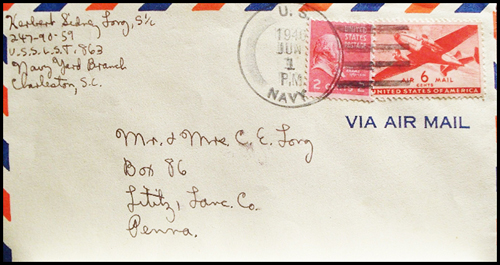 Herbert Sidney Long, S1/c
247-90-59
U.S.S. L.S.T. 863
Navy Yard Branch
Charleston, S.C.
U. S.
1946
JUN
1
P.M.
NAVY
UNITED STATES
POSTAGE
2¢
AIR 6 MAIL
CENTS
UNITED STATES OF AMERICA
VIA AIR MAIL
Mr. & Mrs. C. E. Long
Box 86
Lititz, Lanc. Co.
Penna.